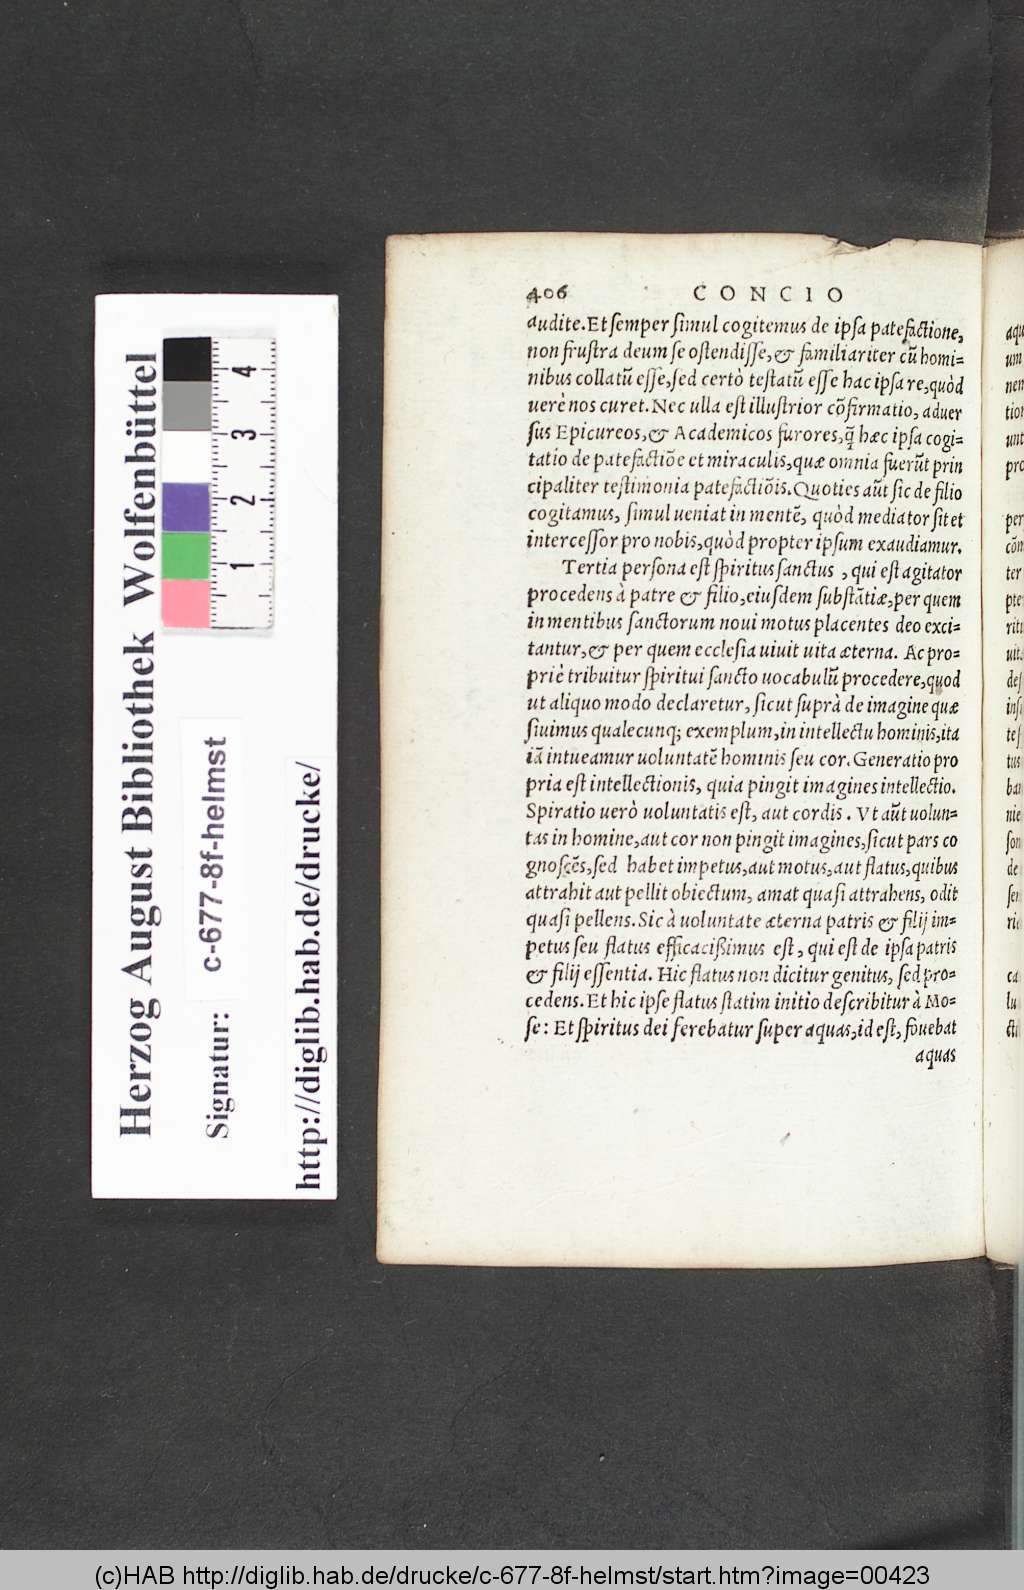 406 CONCIO
audite. Et semper simul cogitemus de ipsa patefactione,
non frustra deum se ostendisse, & familiariter cũ homi=
nibus collatũ esse, sed certò testatũ esse hac ipsa re, quòd
uerè nos curet. Nec ulla est illustrior cõfirmatio, aduer
sus Epicureos, & Academicos furores, q̃ hæc ipsa cogi=
tatio de patefactiõe et miraculis, quæ omnia fuerũt prin
cipaliter testimonia patefactiõis. Quoties aũt sic de filio
cogitamus, simul ueniat in mentẽ, quòd mediator sit et
intercessor pro nobis, quòd propter ipsum exaudiamur.
Tertia persona est spiritus sanctus, qui est agitator
procedens à patre & filio, eiusdem substãtiæ, per quem
in mentibus sanctorum noui motus placentes deo exci=
tantur, & per quem ecclesia uiuit uita æterna. Ac pro=
priè tribuitur spiritui sancto uocabulũ procedere, quod
ut aliquo modo declaretur, sicut suprà de imagine quæ
siuimus qualecunq; exemplum, in intellectu hominis, ita
iã intueamur uoluntatẽ hominis seu cor. Generatio pro
pria est intellectionis, quia pingit imagines intellectio.
Spiratio uerò uoluntatis est, aut cordis. Vt aũt uolun=
tas in homine, aut cor non pingit imagines, sicut pars co
gnoscẽs, sed habet impetus, aut motus, aut flatus, quibus
attrahit aut pellit obiectum, amat quasi attrahens, odit
quasi pellens. Sic à uoluntate æterna patris & filij im=
petus seu flatus efficacißimus est, qui est de ipsa patris
& filij essentia. Hic flatus non dicitur genitus, sed pro=
cedens. Et hic ipse flatus statim initio describitur à Mo=
se: Et spiritus dei ferebatur super aquas, id est, fouebat
aquas
Herzog August Bibliothek Wolfenbüttel
Signatur: c-677-8f-helmst
http://diglib.hab.de/drucke/
1 2 3 4
(c)HAB http://diglib.hab.de/drucke/c-677-8f-helmst/start.htm?image=00423